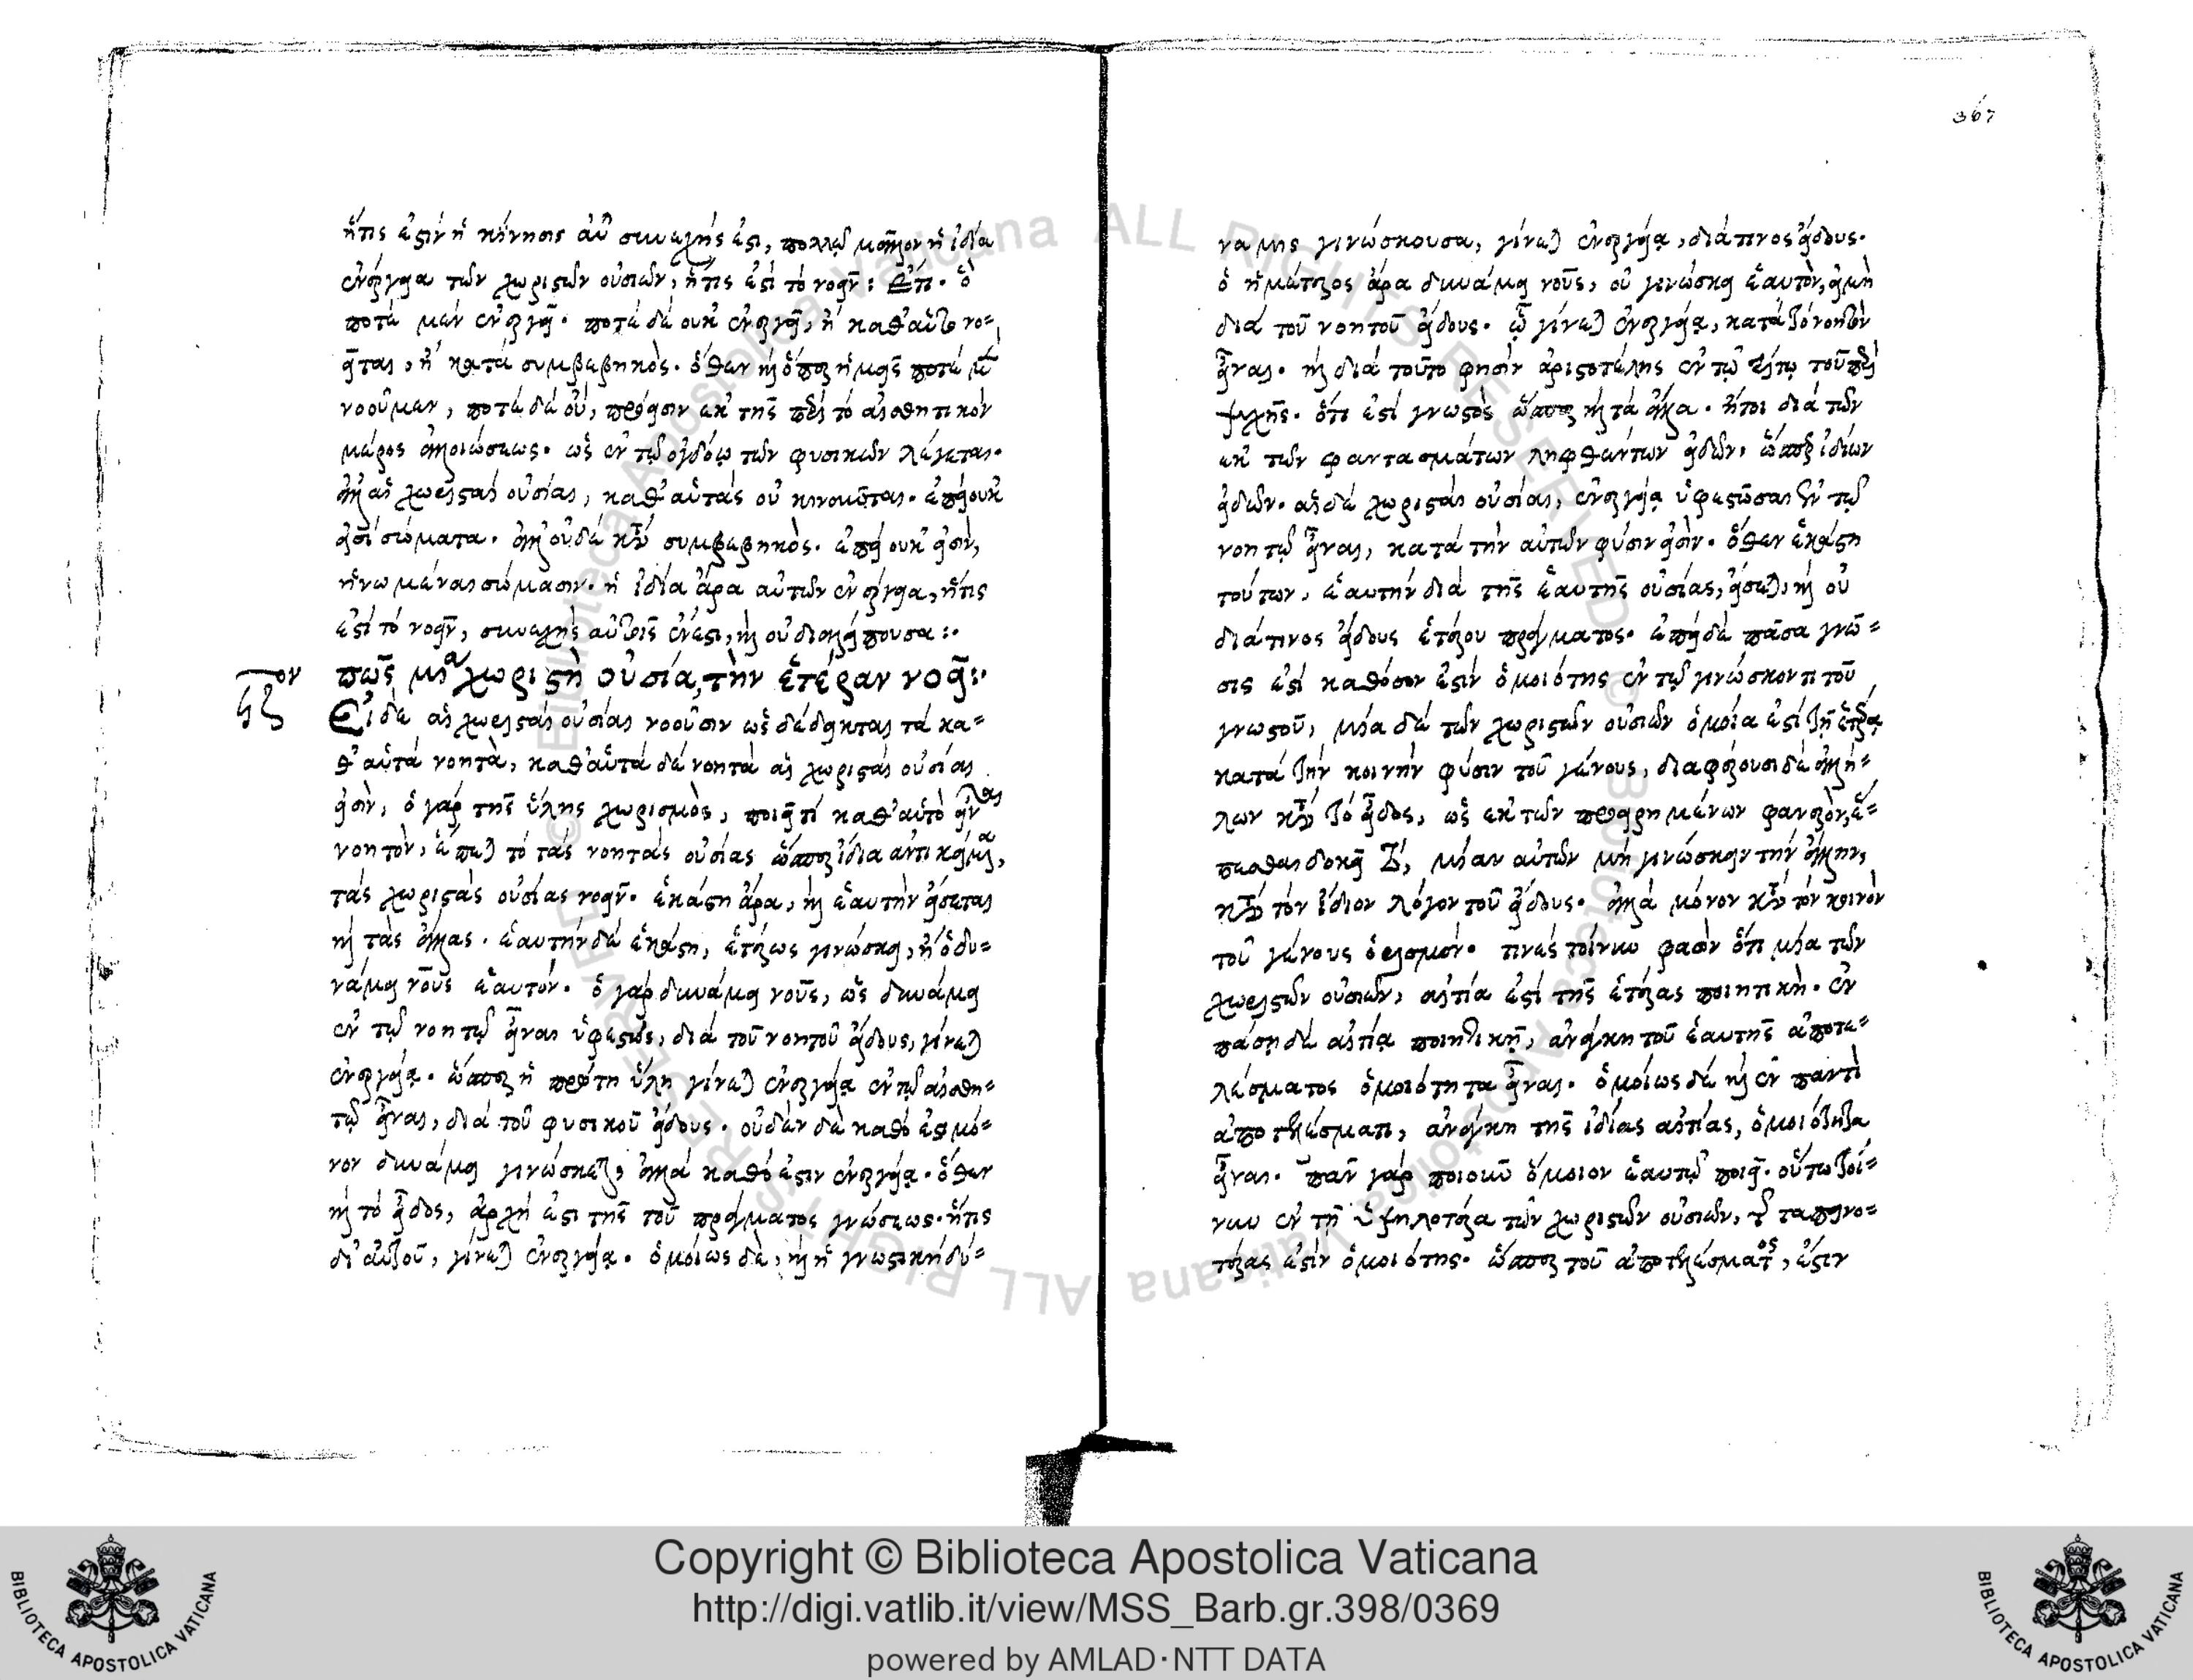 ἥτις ἐστὶν ἡ κίνησις αὐτῶν συνεχής ἐστι, πολλῷ μᾶλλον ἡ ἰδία
ἐνέργεια τῶν χωριστῶν οὐσιῶν, ἥτις ἐστὶ τὸ νοεῖν: ἔτι. ὃ
ποτὲ μὲν ἐνεργεῖ. ποτὲ δὲ οὐκ ἐνεργεῖ, ἢ καθ' αὑτὸ νο=
εῖται, ἢ κατὰ συμβεβηκός. ὅθεν καὶ ὅπερ ἡμεῖς ποτὲ μὲν
νοοῦμεν, ποτὲ δὲ οὔ, πρόεισιν ἐκ τῆς περὶ τὸ αἰσθητικὸν
μέρος ἀλλοιώσεως. ὡς ἐν τῷ ὀγδόῳ τῶν φυσικῶν λέγεται.
ἀλλ' αἱ χωρισταὶ οὐσίαι, καθ' αὑτὰς οὐ κινοῦνται. ἐπεὶ οὐκ
εἰσὶ σώματα. ἀλλ' οὐδὲ κατὰ συμβεβηκός. ἐπεὶ οὐκ εἰσὶν,
ἡνωμέναι σώμασιν. ἡ ἰδία ἄρα αὐτῶν ἐνέργεια, ἥτις
ἐστὶ τὸ νοεῖν, συνεχὴς αὐτοῖς ἔνεστι, καὶ οὐ διαλείπουσα:.
πῶς μία χωριστὴ οὐσία, τὴν ἑτέραν νοεῖ:.
Εἰ δὲ αἱ χωρισταὶ οὐσίαι νοοῦσιν ὡς δέδεικται τὰ κα=
θ' αὑτὰ νοητὰ, καθ' αὑτὰ δὲ νοητὰ αἱ χωρισταὶ οὐσίαι
εἰσὶν, ὁ γὰρ τῆς ὕλης χωρισμὸς, ποιεῖ τί καθ' αὑτὸ εἶναι
νοητὸν, ἕπεται τὸ τὰς νοητὰς οὐσίας ὥσπερ ἴδια ἀντικείμενα,
τὰς χωριστὰς οὐσίας νοεῖν. ἑκάστη ἄρα, καὶ ἑαυτὴν εἴσεται
καὶ τὰς ἄλλας. ἑαυτὴν δὲ ἑκάστη, ἑτέρως γινώσκει, ἢ ὁ δυ=
νάμει νοῦς ἑαυτόν. ὁ γὰρ δυνάμει νοῦς, ὡς δυνάμει
ἐν τῷ νοητῷ εἶναι ὑφεστὼς, διὰ τοῦ νοητοῦ εἴδους, γίνεται
ἐνεργείᾳ. ὥσπερ ἡ πρώτη ὕλη γίνεται ἐνεργείᾳ ἐν τῷ αἰσθη=
τῷ εἶναι, διὰ τοῦ φυσικοῦ εἴδους. οὐδὲν δὲ καθό ἐστι μό=
νον δυνάμει γινώσκεται, ἀλλὰ καθό ἐστιν ἐνεργείᾳ. ὅθεν
καὶ τὸ εἶδος, ἀρχή ἐστι τῆς τοῦ πράγματος γνώσεως. ἥτις
δι' αὐτοῦ, γίνεται ἐνεργείᾳ. ὁμοίως δὲ, καὶ ἡ γνωστικὴ δύ=
367
ναμις γινώσκουσα, γίνεται ἐνεργείᾳ, διά τινος εἴδους.
ὁ ἡμέτερος ἄρα δυνάμει νοῦς, οὐ γινώσκει ἑαυτὸν, εἰ μὴ
διὰ τοῦ νοητοῦ εἴδους. ᾧ γίνεται ἐνεργείᾳ, κατὰ τὸ νοητὸν
εἶναι. καὶ διὰ τοῦτο φησὶν ἀριστοτέλης ἐν τῷ τρίτῳ τοῦ περὶ
ψυχῆς. ὅτι ἐστὶ γνωστὸς ὥσπερ καὶ τὰ ἄλλα. ἤτοι διὰ τῶν
ἐκ τῶν φαντασμάτων ληφθέντων εἰδῶν, ὥσπερ ἰδίων
εἰδῶν. αἱ δὲ χωρισταὶ οὐσίαι, ἐνεργείᾳ ὑφεστῶσαι ἐν τῷ
νοητῷ εἶναι, κατὰ τὴν αὐτῶν φύσιν εἰσίν. ὅθεν ἑκάστη
τούτων, ἑαυτὴν διὰ τῆς ἑαυτῆς οὐσίας, εἴσεται, καὶ οὐ
διά τινος εἴδους ἑτέρου πράγματος. ἐπεὶ δὲ πᾶσα γνῶ=
σις ἐστὶ καθόσον ἐστὶν ὁμοιότης ἐν τῷ γινώσκοντι τοῦ
γνωστοῦ, μία δὲ τῶν χωριστῶν οὐσιῶν ὁμοία ἐστὶ τῇ ἑτέρᾳ
κατὰ τὴν κοινὴν φύσιν τοῦ γένους, διαφέρουσι δὲ ἀλλή=
λων κατὰ τὸ εἶδος, ὡς ἐκ τῶν προειρημένων φανερὸν, ἕ=
πεσθαι δοκεῖ τὸ, μίαν αὐτῶν μὴ γινώσκειν τὴν ἄλλην,
κατὰ τὸν ἴδιον λόγον τοῦ εἴδους. ἀλλὰ μόνον κατὰ τὸν κοινὸν
τοῦ γένους ὁρισμόν. τινὲς τοίνυν φασὶν ὅτι μία τῶν
χωριστῶν οὐσιῶν, αἰτία ἐστὶ τῆς ἑτέρας ποιητική. ἐν
πάσῃ δὲ αἰτίᾳ ποιητικῇ, ἀνάγκη τοῦ ἑαυτῆς ἀποτε=
λέσματος ὁμοιότητα εἶναι. ὁμοίως δὲ καὶ ἐν παντὶ
ἀποτελέσματι, ἀνάγκη τῆς ἰδίας αἰτίας, ὁμοιότητα
εἶναι. πᾶν γὰρ ποιοῦν ὅμοιον ἑαυτῷ ποιεῖ. οὕτω τοί=
νυν ἐν τῇ ὑψηλοτέρᾳ τῶν χωριστῶν οὐσιῶν, τῆς ταπεινο=
τέρας ἐστὶν ὁμοιότης. ὥσπερ τοῦ ἀποτελέσματος, ἐστὶν
Copyright © Biblioteca Apostolica Vaticana
http://digi.vatlib.it/view/MSS_Barb.gr.398/0369
powered by AMLAD·NTT DATA